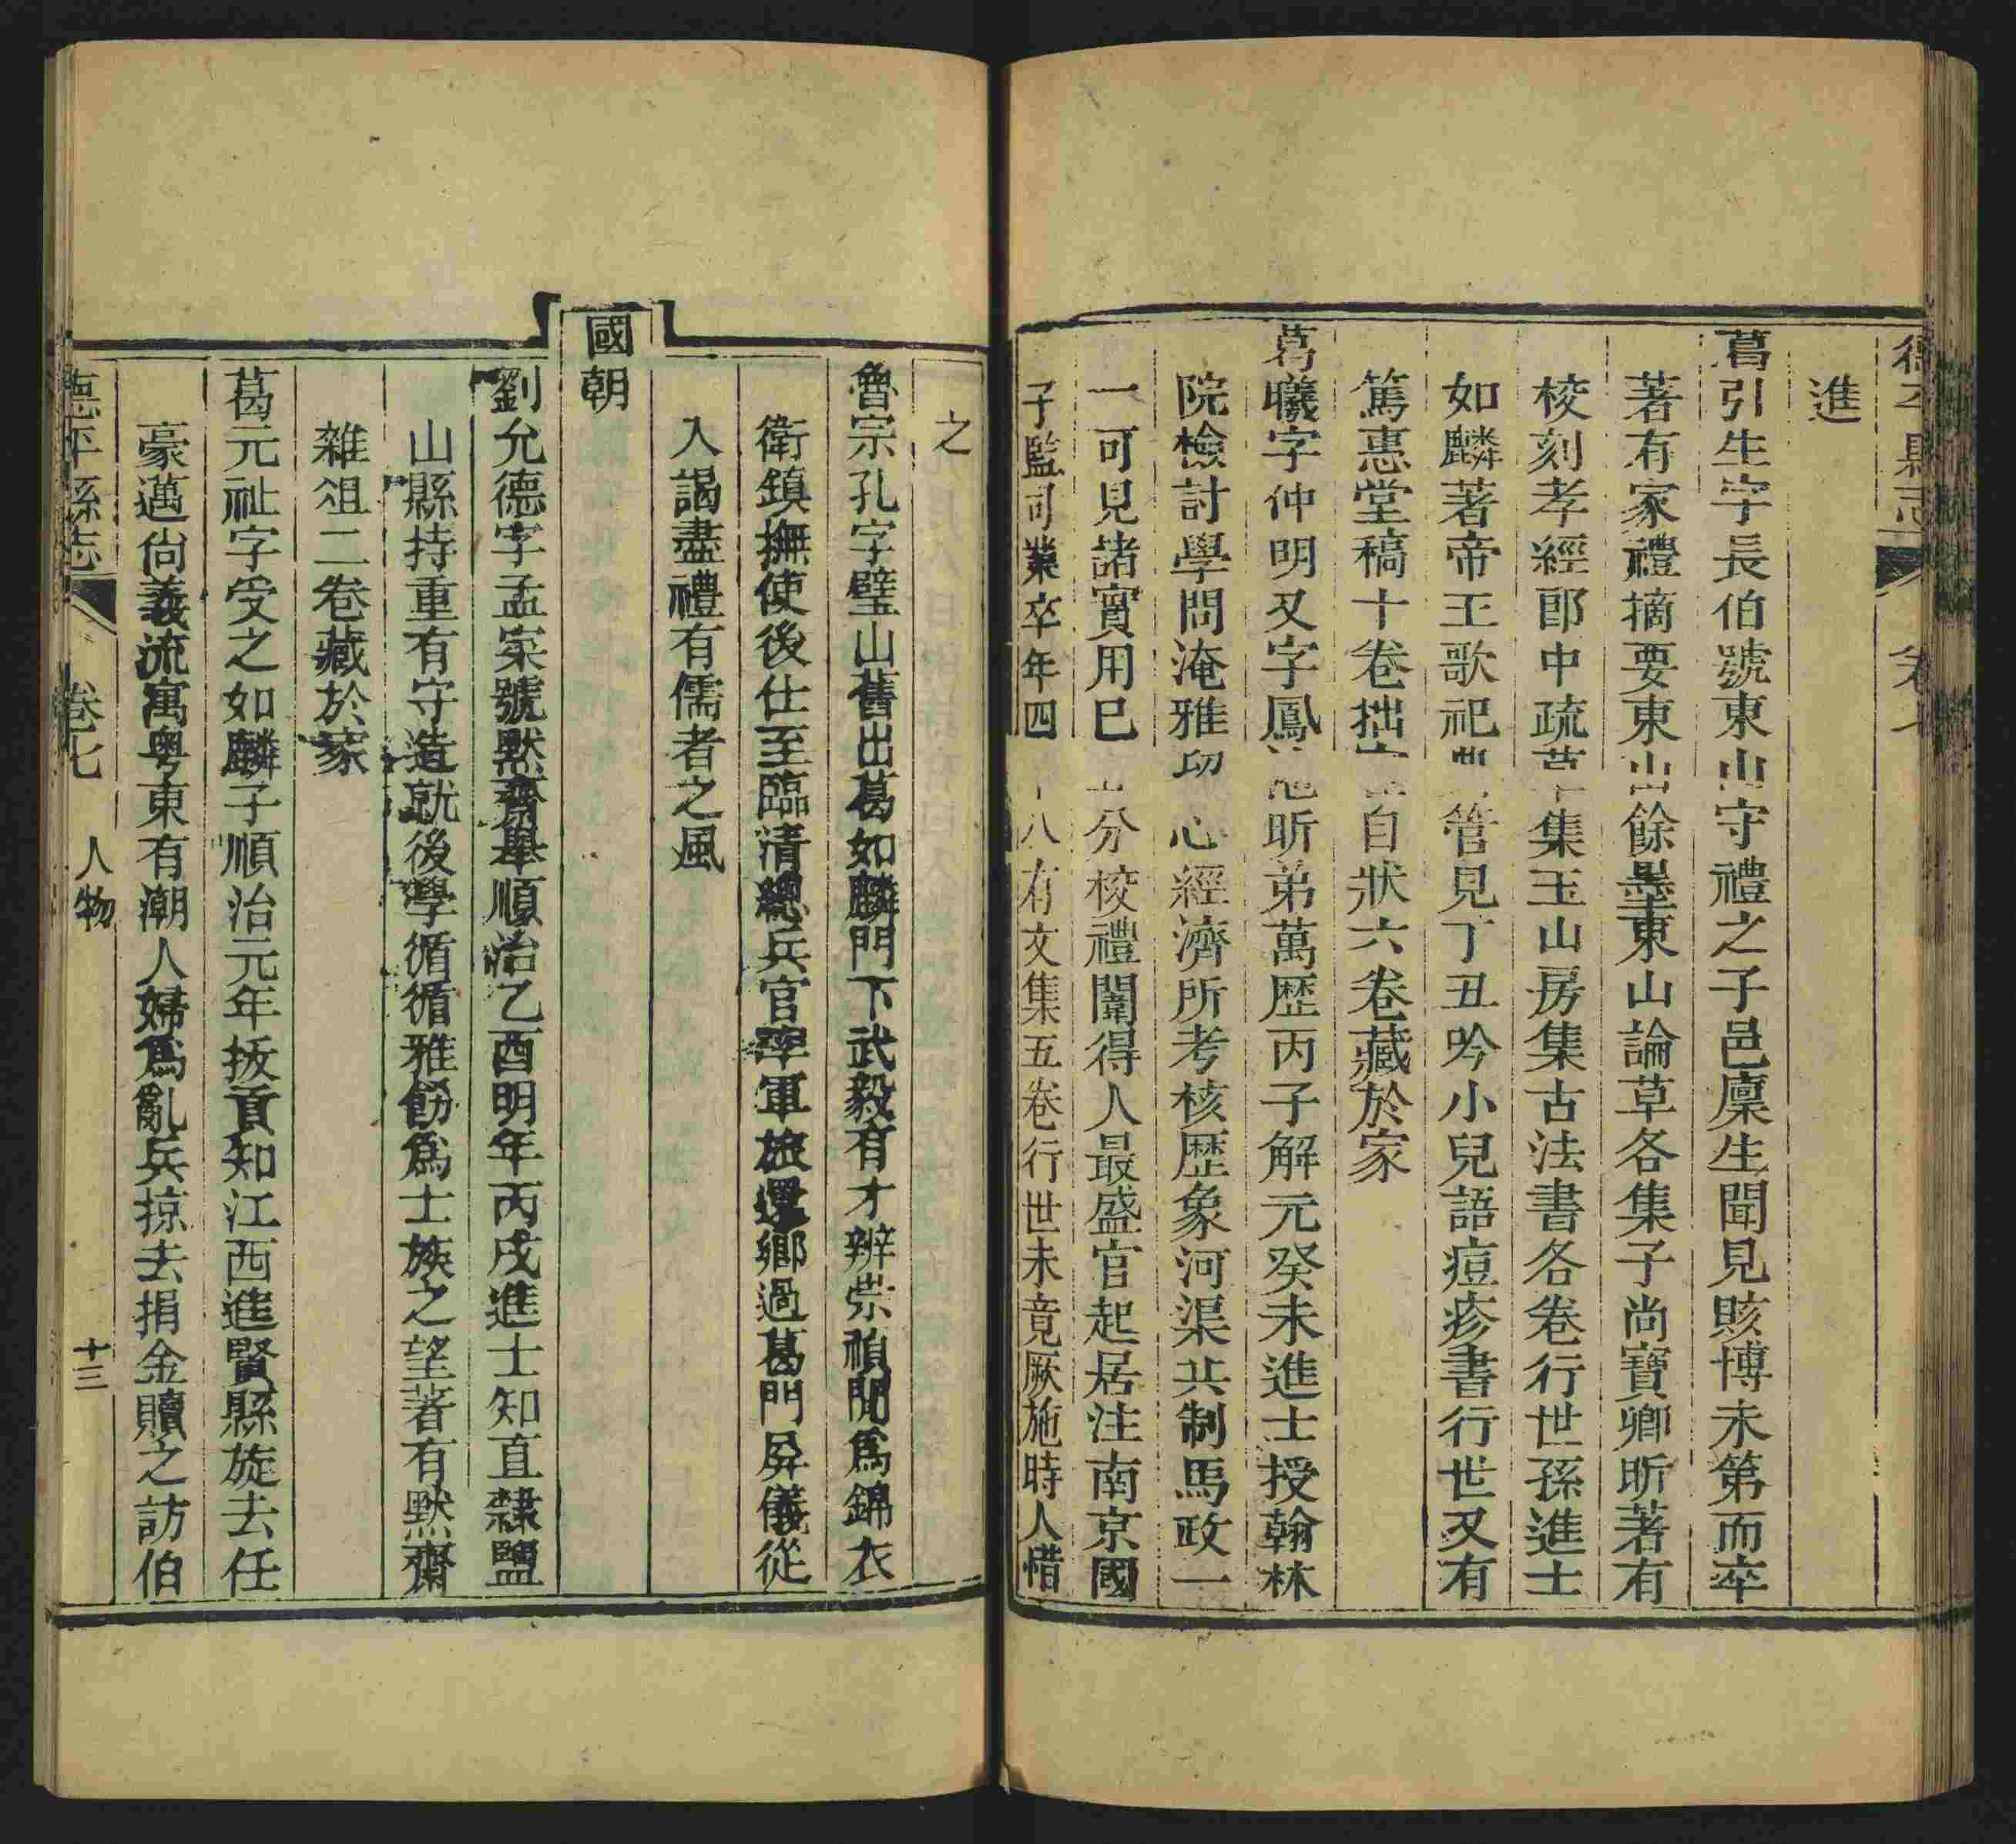 德平縣志 卷七
進
葛引生字長伯號東山守禮之子邑廩生聞見賅博未第而卒
著有家禮摘要東山餘墨東山論草各集子尚寶卿昕著有
校刻孝經郎中疏草集玉山房集古法書各卷行世孫進士
如麟著帝王歌祀典管見丁丑吟小兒語痘疹書行世又有
篤惠堂稿十卷拙自狀六卷藏於家
葛曦字仲明又字鳳池昕弟萬歷丙子解元癸未進士授翰林
院檢討學問淹雅留心經濟所考核歷象河渠兵制馬政一
一可見諸實用巳丑分校禮闈得人最盛官起居注南京國
子監司業卒年四十八有文集五卷行世未竟厥施時人惜
之
魯宗孔字璧山舊出葛如麟門下武毅有才辨崇禎閒爲錦衣
衛鎮撫使後仕至臨清總兵官率軍旅還鄉過葛門屏儀從
入謁盡禮有儒者之風
國朝
劉允德字孟宷號默齋舉順治乙酉明年丙戌進士知直隸鹽
山縣持重有守造就後學循循雅飭爲士族之望著有默齋
雜俎二卷藏於家
葛元祉字受之如麟子順治元年拔貢知江西進賢縣旋去任
豪邁尙義流寓粤東有潮人婦爲亂兵掠去捐金贖之訪伯
德平縣志 卷七 人物 十三